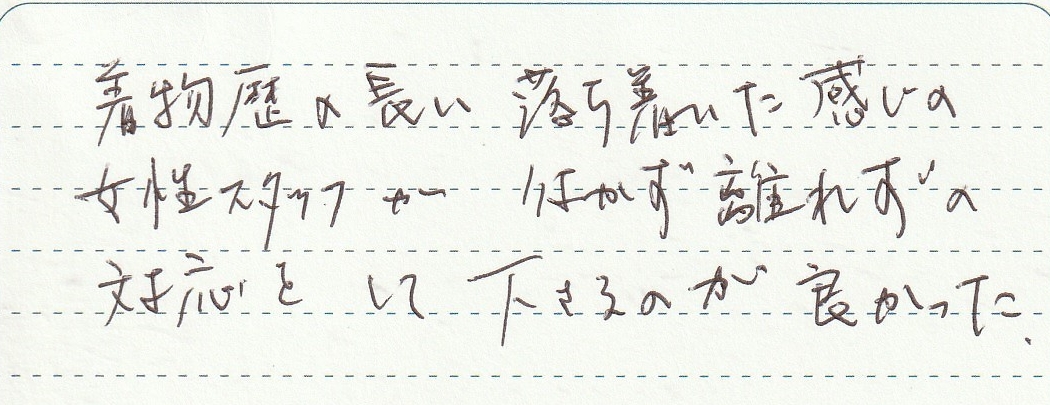 着物歴の長い 落ち着いた感じの
女性スタッフが 付かず離れずの
対応を して下さるのが 良かった.